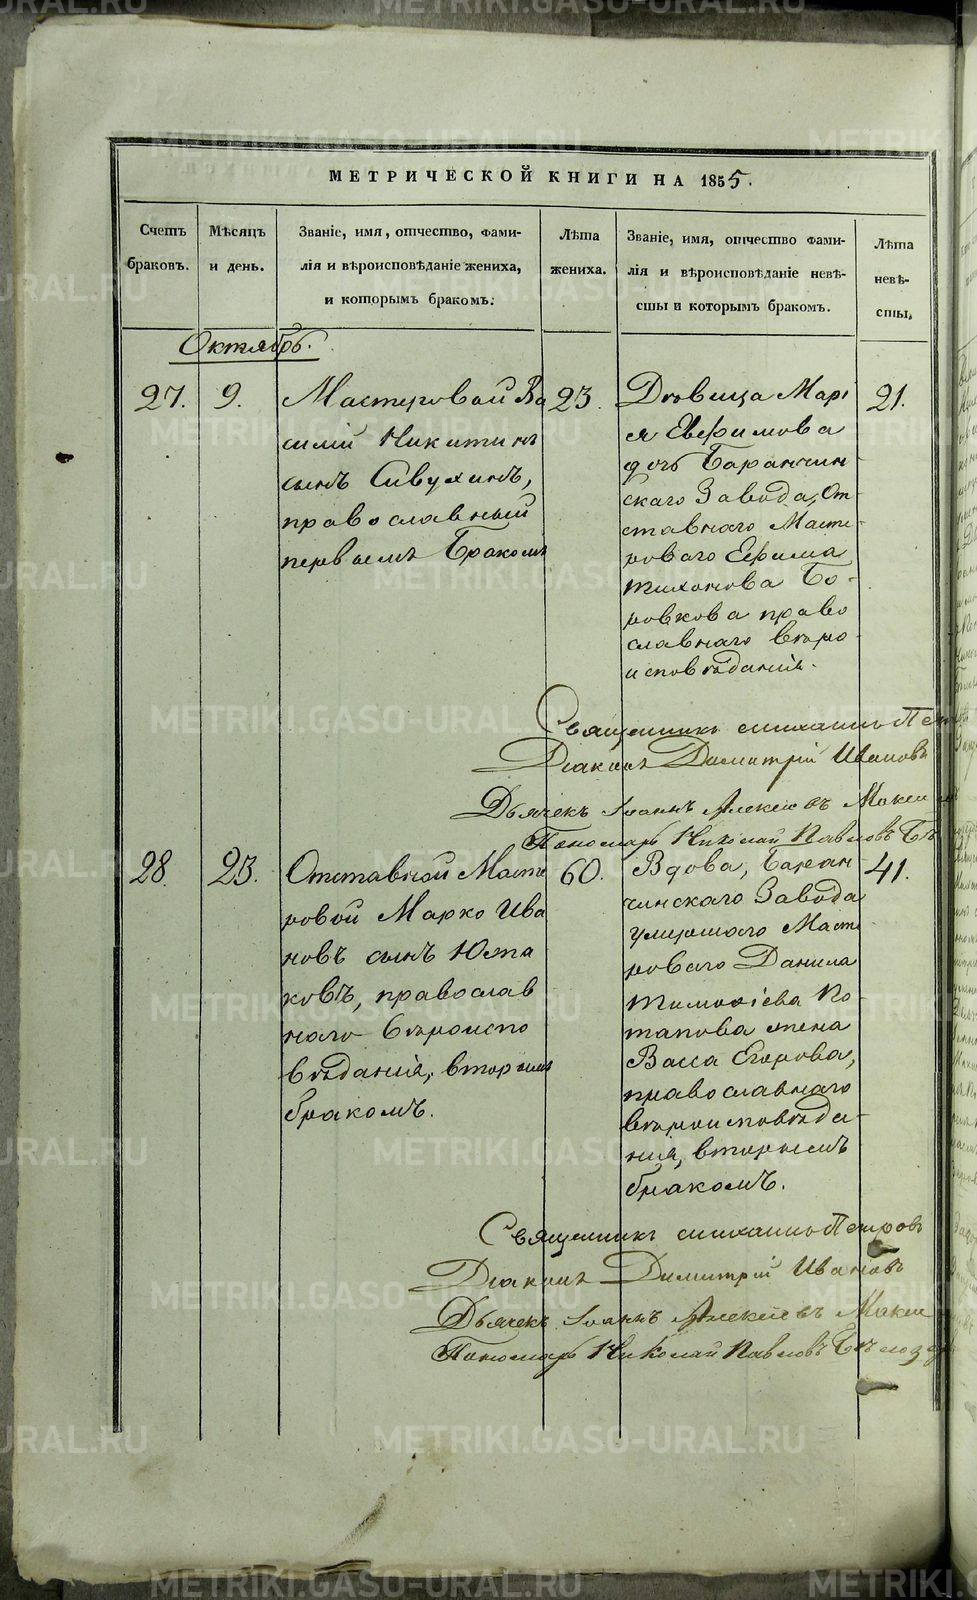 МЕТРИЧЕСКОЙ КНИГИ НА 1855.
Счетъ браковъ.
Мѣсяцъ и день.
Званіе, имя, отчество, фами-
лія и вѣроисповѣданіе жениха,
и которымъ бракомъ.
Лѣта жениха.
Званіе, имя, отчество фами-
лія и вѣроисповѣданіе невѣ-
сты и которымъ бракомъ.
Лѣта невѣ-
сты.
Октябрь.
27.
9.
Мастеровой Ва
силій Никитинъ
сынъ Сивухинъ,
православный
первымъ Бракомъ
23.
Дѣвица Марі
я Евфимова
дочь Баранчин
скаго Завода, От-
ставнаго Масте-
роваго Ефима
Тихонова Бо-
ровкова право
славнаго вѣро-
исповѣданія.
21.
Священникъ Петр
Діаконъ Димитрій Ивановъ
Дьячекъ Іоаннъ Алексѣевъ Макси
Пономарь Николай Павловъ Бѣ
28.
23.
Отставной Масте
ровой Марко Ива
новъ сынъ Южа
ковъ, православ
наго вѣроиспо
вѣданія, вторымъ
бракомъ.
60.
Вдова, Баран
чинскаго Завода
умершаго Масте
роваго Данила
Тимофіева По
тапова жена
Васса Егорова,
православнаго
вѣроисповѣда-
нія, вторымъ
бракомъ.
41.
Священникъ Петровъ
Діаконъ Димитрій Ивановъ
Дьячекъ Іоаннъ Алексѣевъ Макси
Пономарь Николай Павловъ Бѣлозер
METRIKI.GASO-URAL.RU